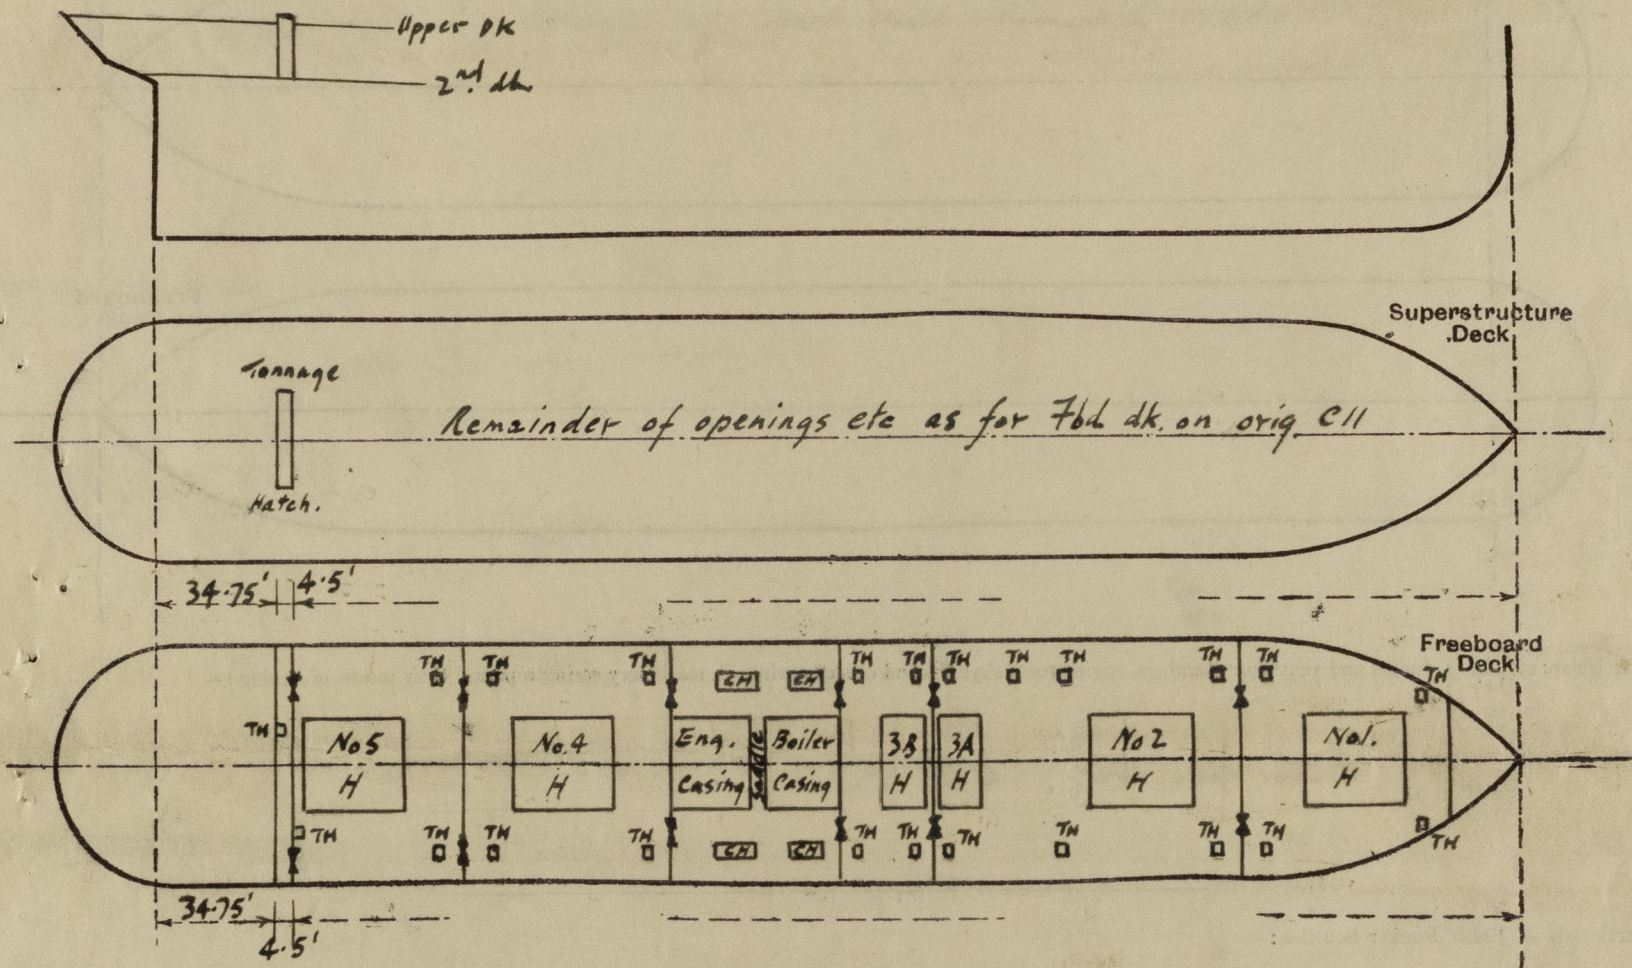 Upper DK
2nd. dk
Superstructure
Deck
Tonnage
Remainder of openings etc as for Fbd dk. on orig C11
Hatch.
34.75' 4.5'
Freeboard
Deck
TH TH TH CH CH TH TH TH TH TH TH TH TH
TH No5 H No.4 H Eng. Casing Saddle Boiler Casing 3B H 3A H No2 H No1. H
TH TH TH TH CH CH TH TH TH TH TH TH TH
34.75'
4.5'